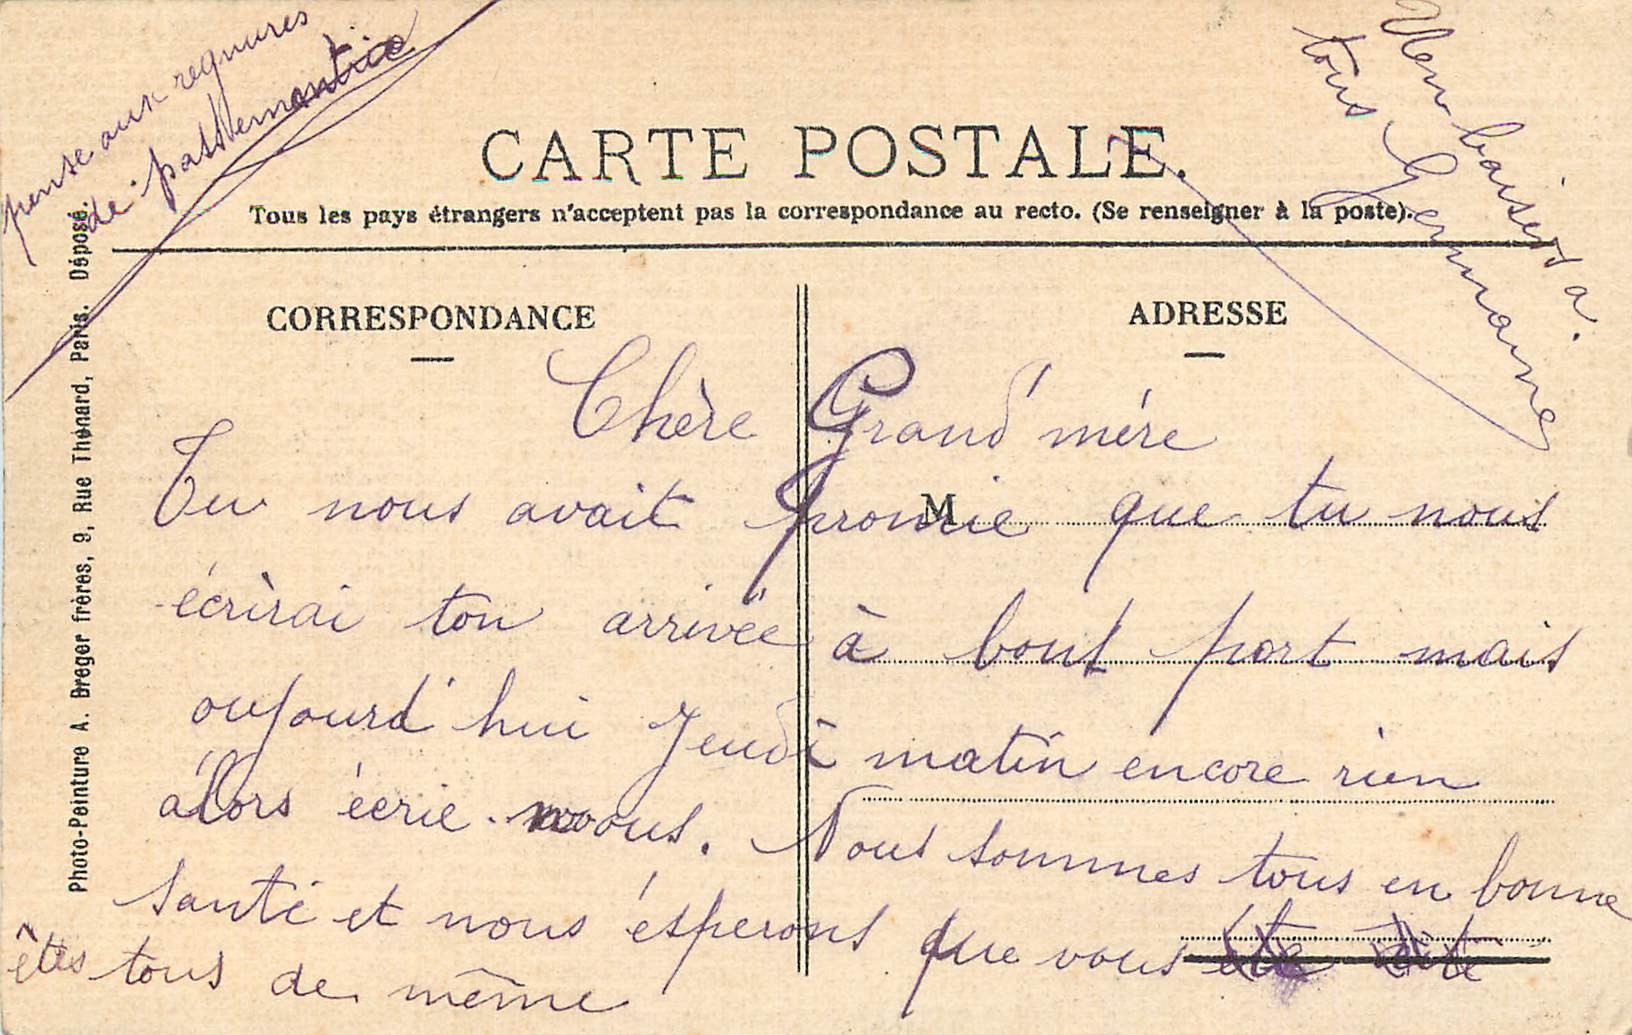 pense aux regnures
de passementrie
Mem baisers a.
tous Germaine
CARTE POSTALE.
Tous les pays étrangers n'acceptent pas la correspondance au recto. (Se renseigner à la poste).
CORRESPONDANCE
ADRESSE
Photo-Peinture A. Breger frères, 9, Rue Thénard, Paris. Déposé.
Chère Grand'mére
Tu nous avait promie que tu nous
M
écrirai ton arrivée à bout port mais
oujourd'hui Jeudi matin encore rien
alors écrie nous. Nous sommes tous en bonne
santé et nous ésperons que vous
êtes tous de même